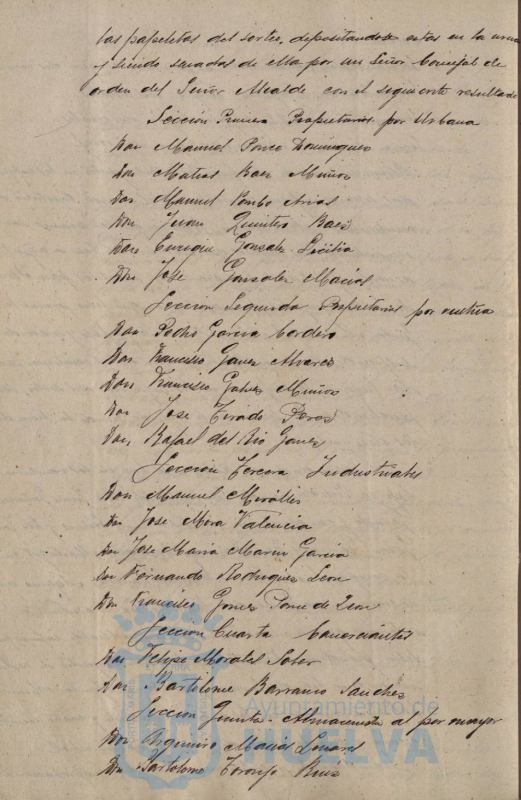 las papeletas del sorteo, depositandose estas en la urna
y siendo sacadas de ella por un Señor Concejal de
orden del Señor Alcalde con el siguiente resultado
Sección Primera Propietarios por Urbana
Don Manuel Ponce Dominguez
Don Matias Baez Muñoz
Don Manuel Pombo Arias
Don Juan Quintero Baez
Don Enrique Gonzalez Sicilia
Don José Gonzalez Macias
Sección Segunda Propietarios por rustica
Don Pedro Garcia Cordero
Don Francisco Gomez Alvarez
Don Francisco Galvez Muñoz
Don José Tirado Perez
Don Rafael del Rio Gomez
Sección Tercera Industriales
Don Manuel
Don José Mora Valencia
Don José Maria Marin Garcia
Don Fernando Rodriguez Leon
Don Francisco Gomez Ponce de Leon
Sección Cuarta Comerciantes
Don Felipe Morales Soler
Don Bartolomé Barranco Sanchez
Sección Quinta Almacenistas al por mayor
Don Argimiro Macias
Don Bartolomé Toronjo Ruiz
Ayuntamiento de
HUELVA